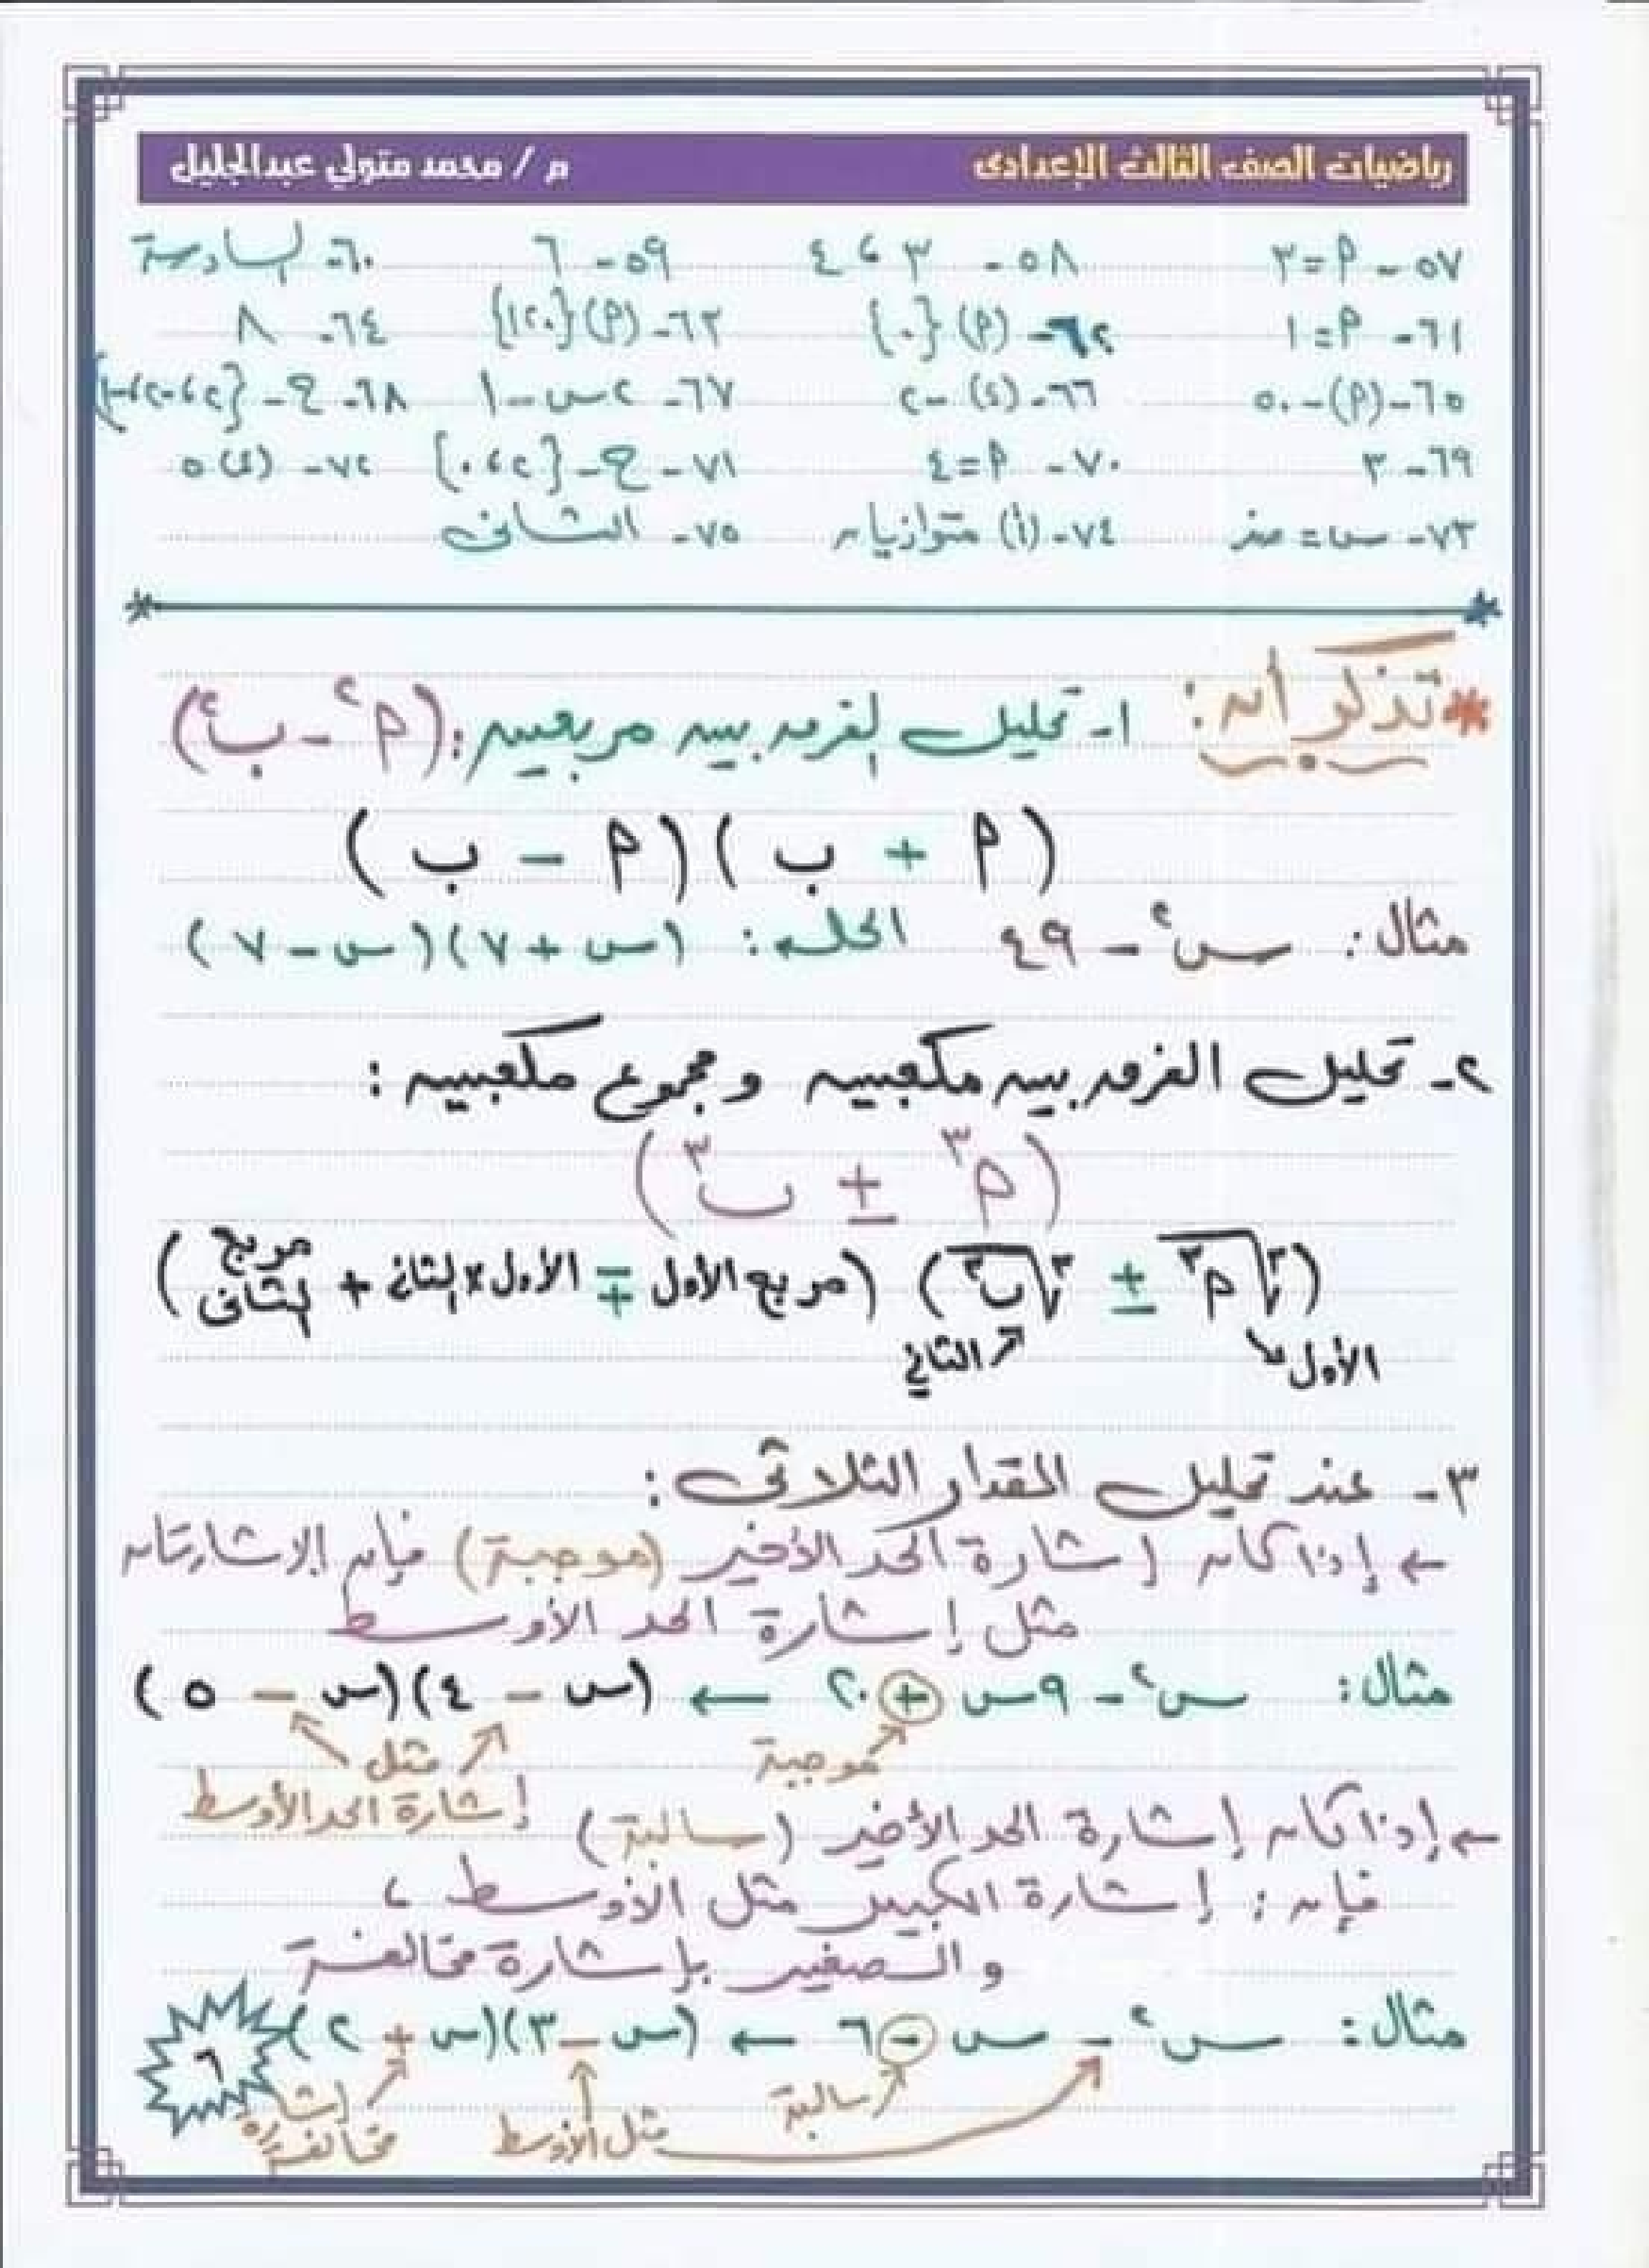 رياضيات الصف الثالث الإعدادى م / محمد متولي عبدالجليل
٥٧- م = ٣ ٥٨- ٣ ، ٤ ٥٩- ٦ ٦٠- السادسة
٦١- م = ١ ٦٢- (م) {٠} ٦٣- (م) {١٢٠} ٦٤- ٨
٦٥- (م) -٥٠ ٦٦- (٤) -٢ ٦٧- ٢س - ١ ٦٨- ح -
٦٩- ٣ ٧٠- م = ٤ ٧١- ح - {٢ ، ٠} ٧٢- (٤) ٥
٧٣- س = صفر ٧٤- (أ) متوازيان ٧٥- الثانى
* تذكر أن : ١- تحليل الفرق بين مربعين : (م² - ب²)
(م + ب) (م - ب)
مثال : س² - ٤٩ الحل : (س + ٧) (س - ٧)
٢- تحليل الفرق بين مكعبين ومجموع مكعبين :
(م³ ± ب³)
(∛م³ ± ∛ب³) (مربع الأول ∓ الأول × الثانى + مربع الثانى)
الأول الثاني
٣- عند تحليل المقدار الثلاثى :
← إذا كان إشارة الحد الأخير (موجبة) فإن الاشارتان
مثل إشارة الحد الأوسط
مثال : س² - ٩س + ٢٠ ← (س - ٤) (س - ٥)
موجبة مثل
إشارة الحد الأوسط
← إذا كان إشارة الحد الأخير (سالبة)
فإن : إشارة الكبير مثل الأوسط ،
والصغير بإشارة مخالفة
مثال : س² - س - ٦ ← (س - ٣) (س + ٢)
سالبة مثل الأوسط مخالفة
٦